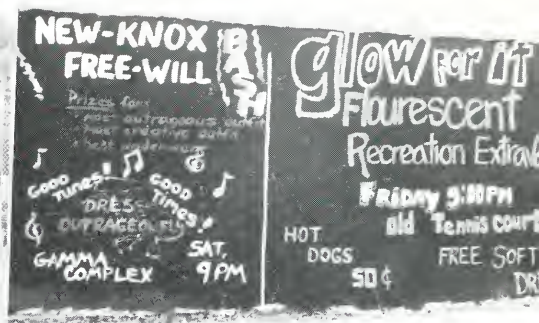 NEW-KNOX
FREE-WILL
BASH
Prizes for:
- most outrageous outfit
- most creative outfit
- best underwear
GOOD TUNES!
GOOD TIMES!
DRESS
OUTRAGEOUSLY
GAMMA
COMPLEX
SAT,
9PM
glow for it
Flourescent
Recreation Extrav
FRIDAY 9:00PM
old Tennis court
HOT
DOGS
50¢
FREE SOFT
DR